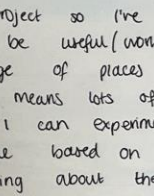 roject so I've
be useful (won
ge of places
means lots of
I can experim
e based on
ing about the